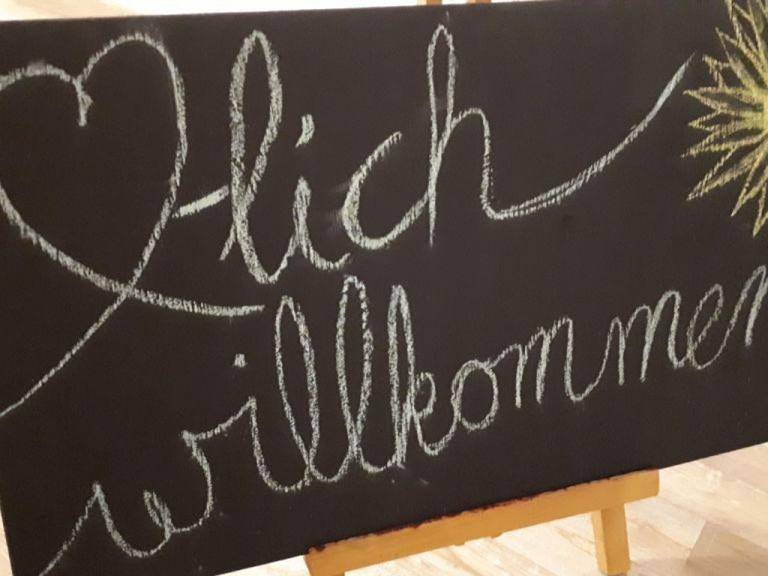 ♥lich
willkommen